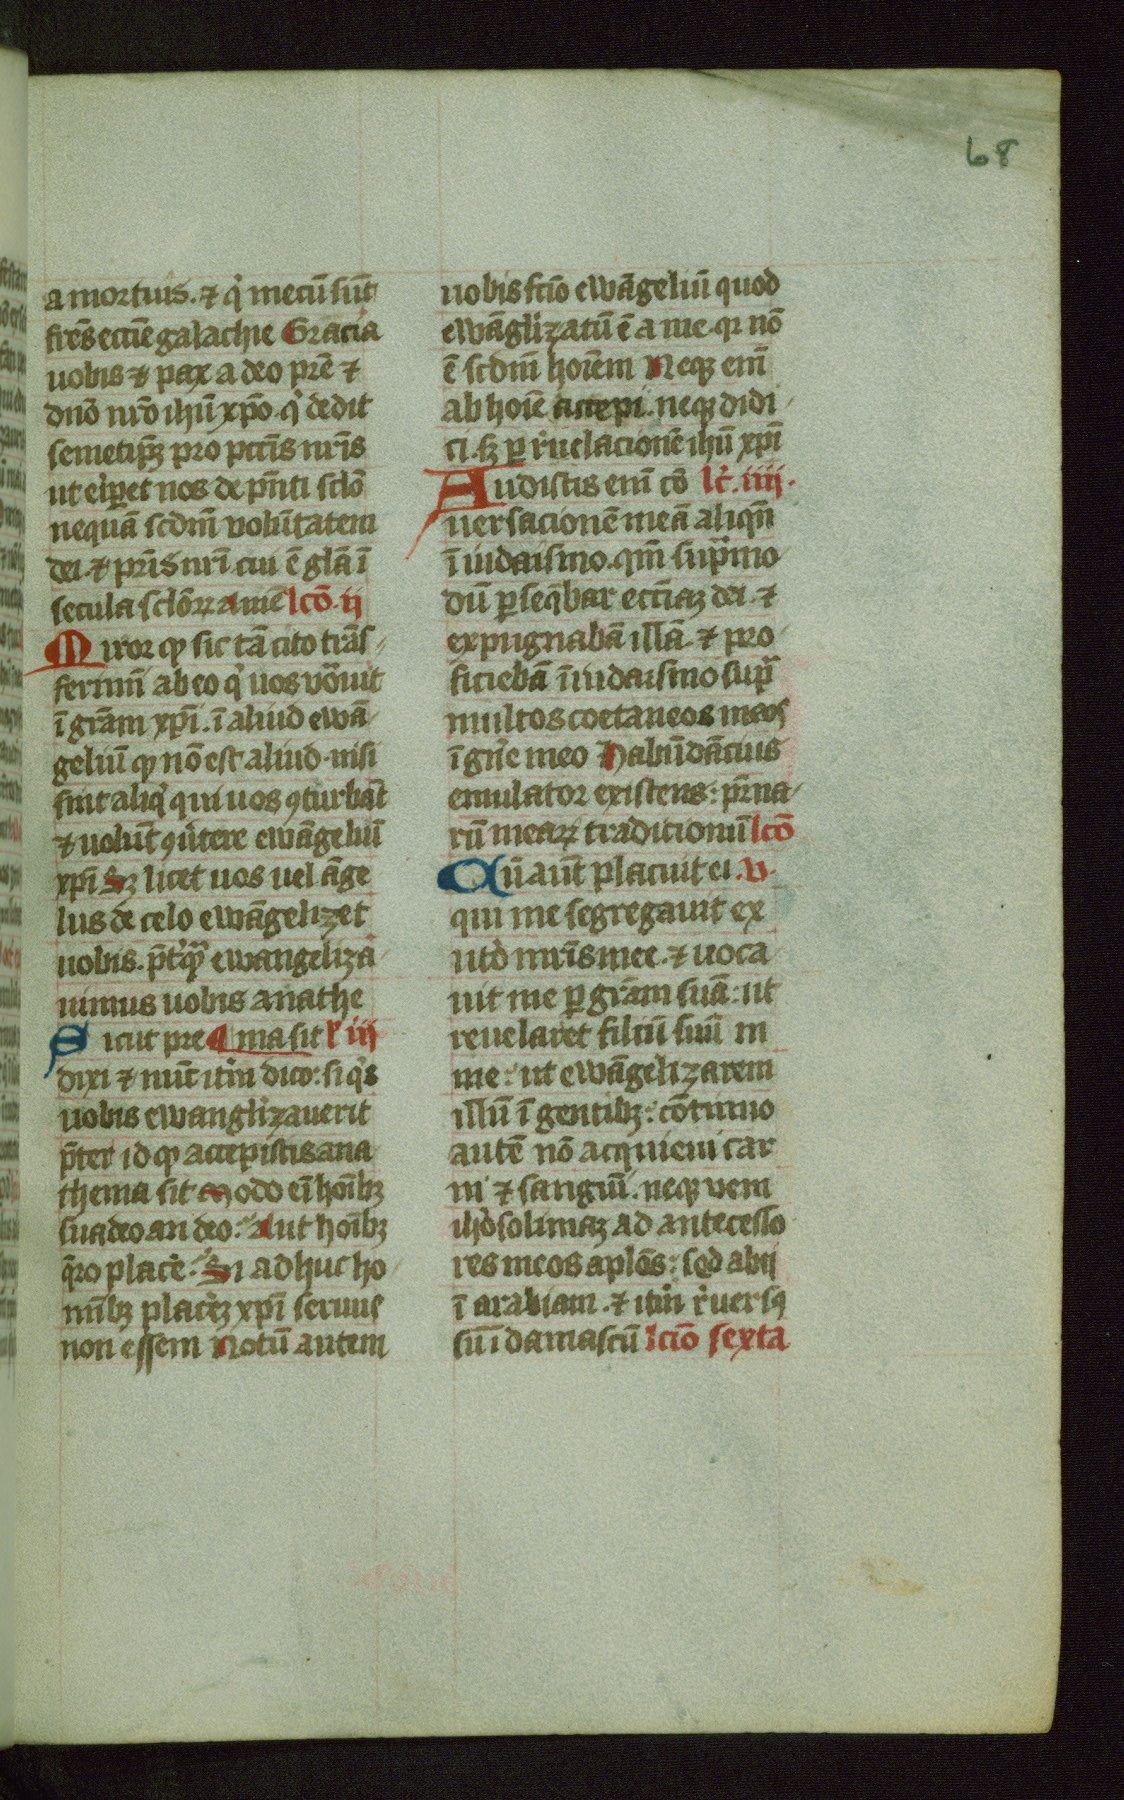 68
a mortuis. ⁊ q̇ mecū sūt
fres̄ eccīe galachie Gracia
uobis ⁊ pax a deo pr̄e ⁊
dn̄o nr̄o ihū xp̄o. q̇ dedit
semetip̄ꝫ pro pctīs nr̄is
ut eiꝑet nos de pn̄ti sclō
nequā scdm̄ volūtatem
dei. ⁊ pr̄is nr̄i cui ē glā ī
secula sclōꝝ amē lcō. ij
Miror qꝫ sic tā cito trās-
ferimī ab eo q̇ uos vōuit
ī grām xp̄i. ī aliud ewā-
geliū qꝫ nō est aliud. nisi
sint aliq̇ qui uos ꝯturbāt
⁊ uolūt ꝯūtere ewāgeliū
xp̄i Sꝫ licet uos uel āge
lus de celo ewāgelizet
uobis. p̄t̓q̄ꝫ ewangeliza-
uimus uobis anathe
Sicut pre ¶ ma sit l̓ iij
dixi ⁊ nūc it̓m dico: si q̇s
uobis ewanglizauerit
p̄ter id qꝫ accepistis ana-
thema sit Modo eī hoībꝫ
suadeo an deo: Aut hoībꝫ
q̄ro plac̓e. Si adhuc ho-
mībꝫ plac̓eꝫ xp̄i seruus
non essem Notū autem
uobis fcīo ewāgeliū quod
ewāglizatū ē a me. qꝛ nō
ē scdm̄ hoīem Neqꝫ enī
ab hoīe accepi. neqꝫ didi-
ci. sꝫ ꝑ r̓uelacionē ihū xp̄i
Audistis enī cō lc̓. iiij.
uersacionē meā aliqn̄
ī iudaismo. qm̄ sup̄ mo
dū ꝑseq̄bar eccīaꝫ dei. ⁊
expugnabā illā. ⁊ pro-
ficiebā ī iudaismo sup̄
multos coetaneos meos
ī gn̄e meo Habūdācius
emulator existens: pr̄na-
rū meaꝝ tradicionū lcō
Cū aūt placuit ei. v.
qui me segregauit ex
ut̓o mr̄is mee. ⁊ uoca-
uit me ꝑ grām suā: ut
reuelaret filiū suū in
me: ut ewāgelizarem
illū ī gentibꝫ: cōtinuo
autē nō acquieui car
ni ⁊ sanguī. neqꝫ veni
ih̓osolimaꝫ ad antecesso-
res meos aplōs: sed abij
ī arabiam. ⁊ it̓m r̓uersꝯ
sū ī damascū lcīo sexta